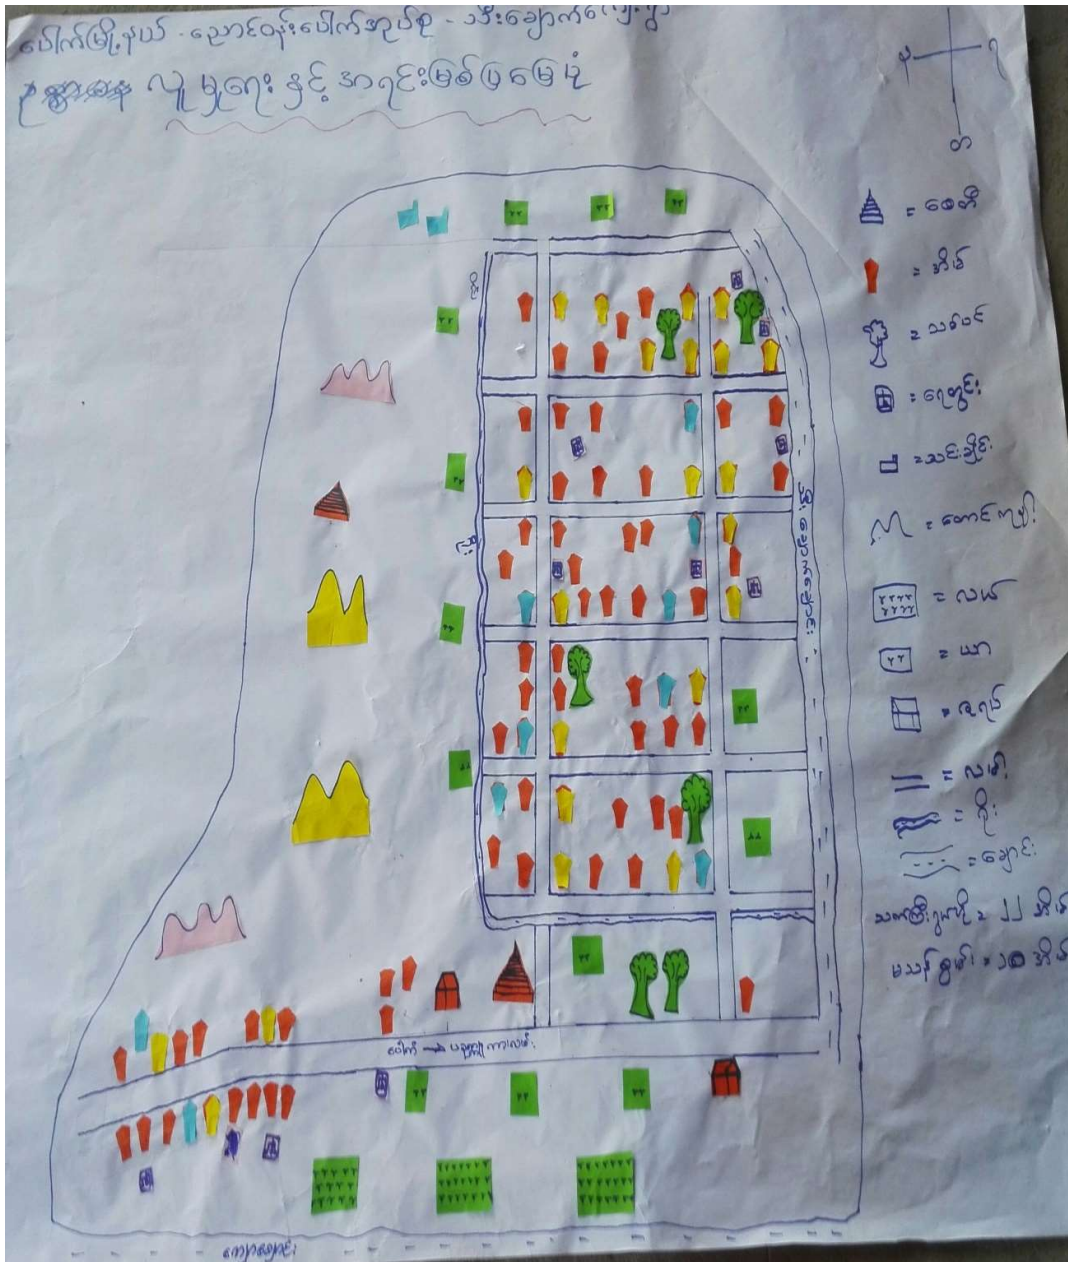 ပေါက်မြို့နယ် - ညောင်ဝန်းပေါက်အုပ်စု - သီးချောက်ကျေးရွာ
လူမှုရေး နှင့် အရင်းမြစ်ပြမြေပုံ
တ
= စေတီ
= အိမ်
= သစ်ပင်
= ရေတွင်း
= သင်းချိုင်း
= တောင်ကမူ
= လယ်
= ယာ
= ဇရပ်
= လမ်း
= ရိုး
= ချောင်း
= ၂၂ အိမ်
မသန်စွမ်း = ၁၀ အိမ်
ရိုး
ချောင်း
ပေါက် → ပခုက္ကူ ကားလမ်း
ကျောချောင်း